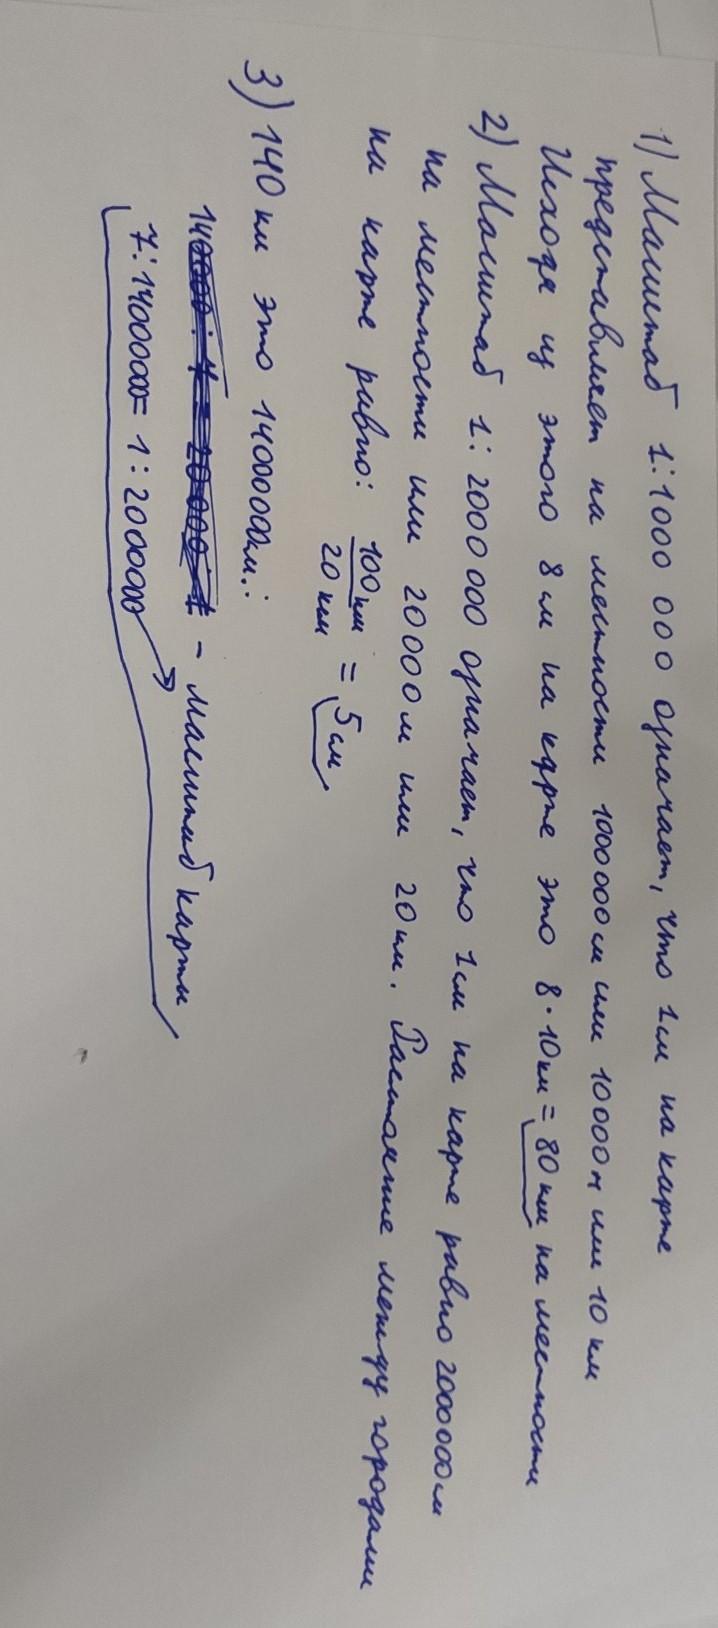 1) Масштаб 1:1000 000 означает, что 1см на карте
представляет на местности 1000000см или 10000м или 10 км
Исходя из этого 8см на карте это 8·10км = 80км на местности
2) Масштаб 1:2000 000 означает, что 1см на карте равно 2000000см
на местности или 20000м или 20км. Расстояние между городами
на карте равно: 100км/20км = 5см
3) 140 км это 14000000см.:
- масштаб карты
7:14000000= 1:2000000